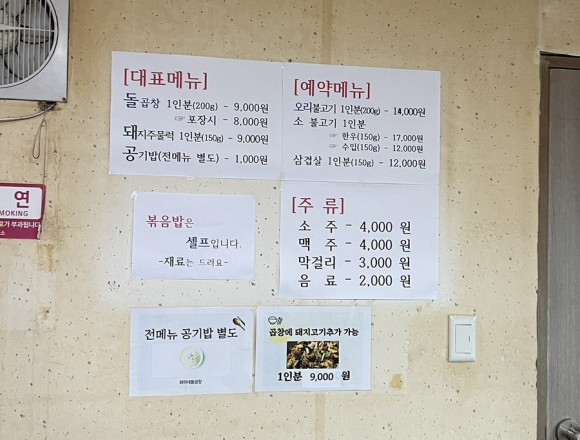 [대표메뉴]
돌곱창 1인분(200g) - 9,000원
☞ 포장시 - 8,000원
돼지주물럭 1인분(150g) - 9,000원
공기밥(전메뉴 별도) - 1,000원
[예약메뉴]
오리불고기 1인분(200g) - 14,000원
소 불고기 1인분
☞ 한우(150g) - 17,000원
☞ 수입(150g) - 12,000원
삼겹살 1인분(150g) - 12,000원
[주 류]
소 주 - 4,000 원
맥 주 - 4,000 원
막걸리 - 3,000 원
음 료 - 2,000 원
볶음밥은
셀프입니다.
-재료는 드려요-
전메뉴 공기밥 별도
곱창에 돼지고기추가 가능
1인분 9,000 원
연
MOKING
가 부과됩니다